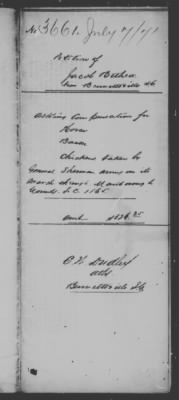 No 3661. July 7/71
Petition of
Jacob Bethea
near Bennettsville SC
Asking Compensation for
Horse
Bacon
Chickens taken by
General Sherman army on its
march through Marlborough
County S.C. 1865
Amt $
C. W. Dudley
Atty
Bennettsville SC